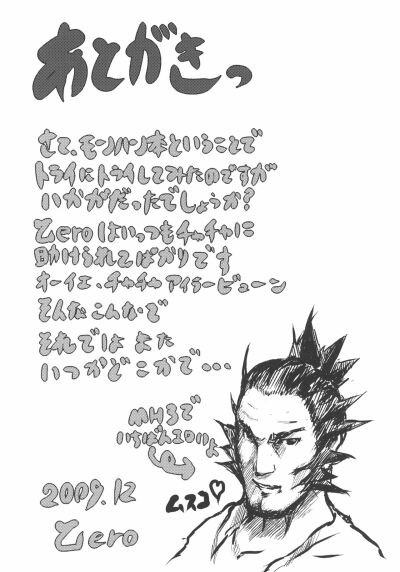 あとがきっ
さて、モンハン本ということで
トライにトライしてみたのですが
いかがだったでしょうか?
Zeroはいつもチャチャに
助けられてばかりです
オーイエ、チャチャアイラービューン
そんなこんなで
それでは また
いつかどこかで…
MH3で
いちばんエロいよ
ムスコ♡
2009.12
Zero